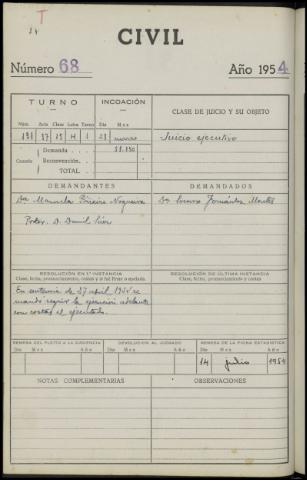 T
CIVIL
Número 68
Año 1954
TURNO
INCOACIÓN
CLASE DE JUICIO Y SU OBJETO
Núm. Acta Clase Letra Turno Día Mes
27 15 H 1 21
Juicio ejecutivo
Cuantía
Demanda
Reconvención
TOTAL
DEMANDANTES
DEMANDADOS
Da Manuela Piñeiro Nogueira
Fernández
Procr. D.
RESOLUCIÓN EN 1ª INSTANCIA
Clase, fecha, pronunciamiento, costas y si fué firme o apelada
RESOLUCIÓN DE ÚLTIMA INSTANCIA
Clase, fecha, pronunciamiento y costas
En sentencia de 27 abril 1954 se
mandó seguir la ejecución adelante
con costas al ejecutado.
REMESA DEL PLEITO A LA AUDIENCIA
DEVOLUCIÓN AL JUZGADO
REMESA DE LA FICHA ESTADÍSTICA
Día Mes Año Día Mes Año Día Mes Año
14 julio 1954
NOTAS COMPLEMENTARIAS
OBSERVACIONES